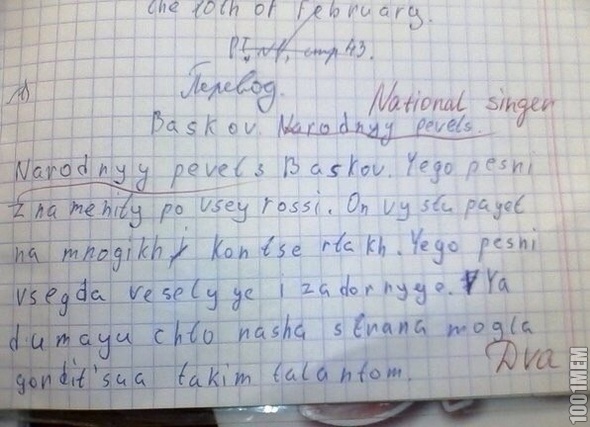 the 10th of February.
PI, №1, стр 43.
Перевод.
National singer
Baskov. Narodnyy pevets.
Narodnyy pevets Baskov. Yego pesni
znamenity po vsey rossi. On vystupayet
na mnogikh kontsertakh. Yego pesni
vsegda veselyye i zadornyye. Ya
dumayu chto nasha strana mogla
gordit'sya takim talantom.
Dva
1001MEM